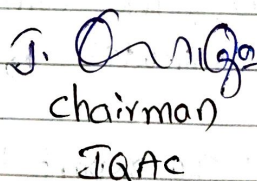 J.
chairman
IQAC